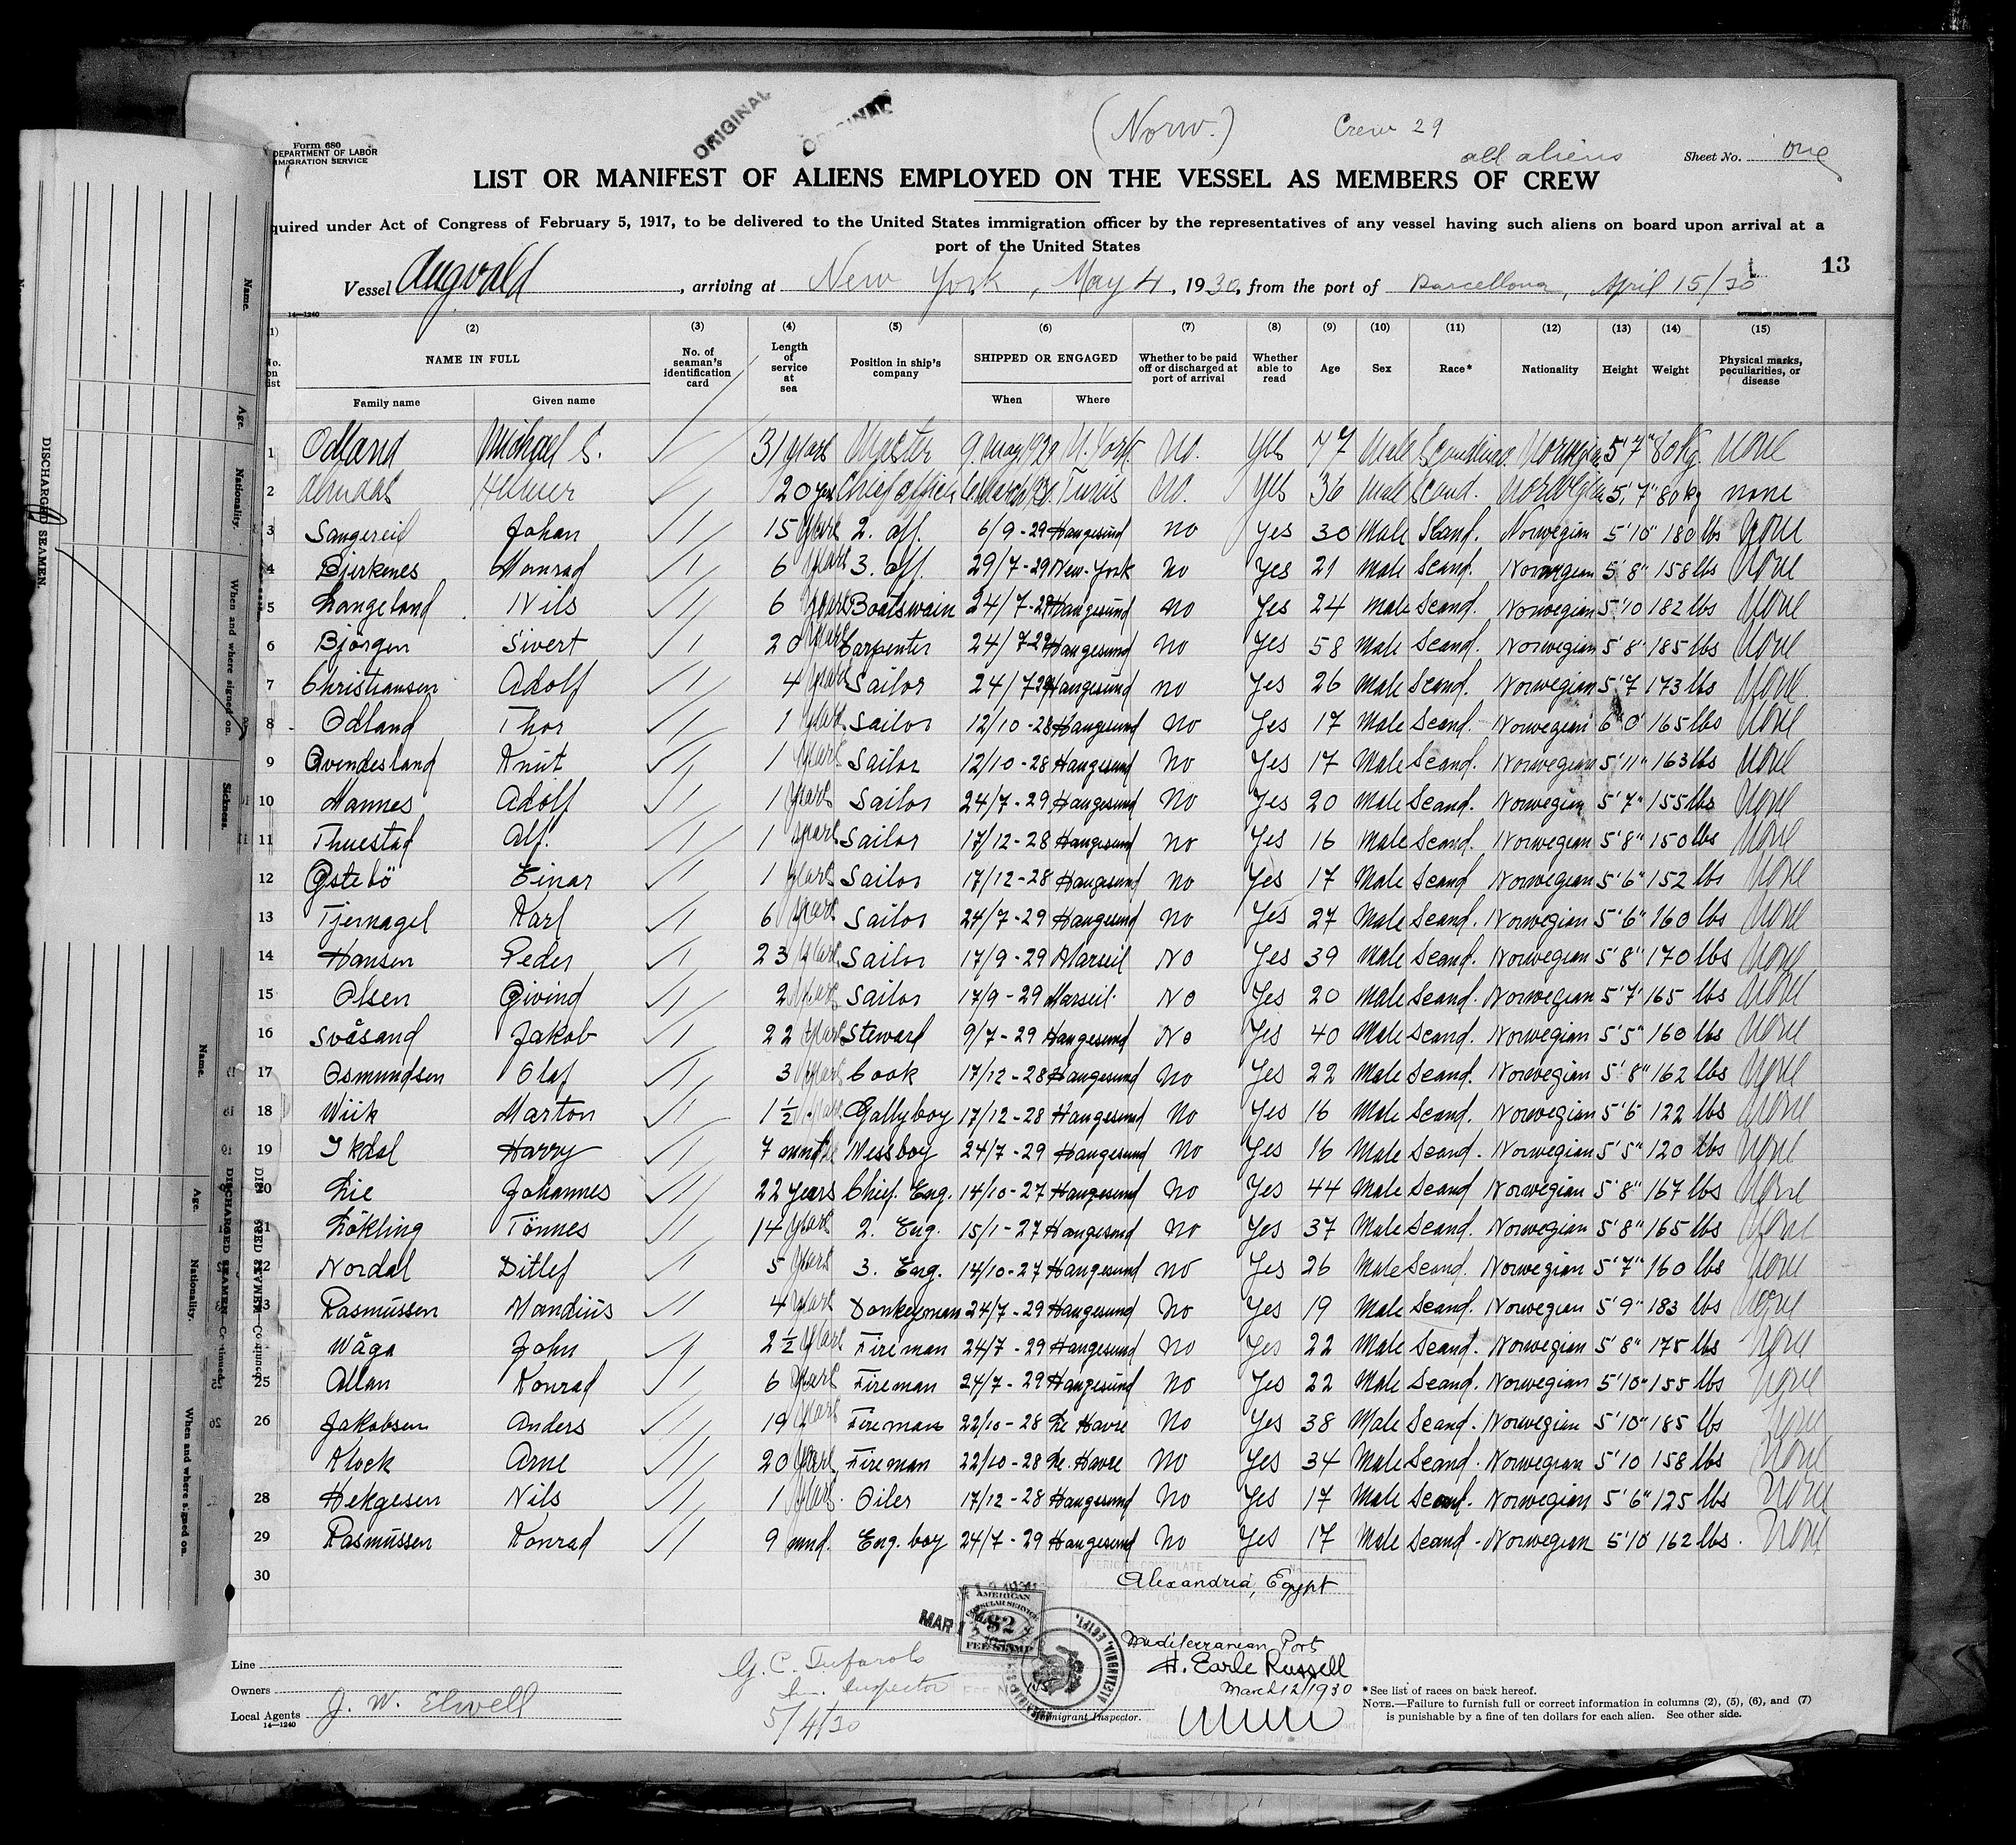 ORIGINAL
(Norw.) Crew 29
all aliens
Form 680
DEPARTMENT OF LABOR
IMMIGRATION SERVICE
Sheet No. one
LIST OR MANIFEST OF ALIENS EMPLOYED ON THE VESSEL AS MEMBERS OF CREW
quired under Act of Congress of February 5, 1917, to be delivered to the United States immigration officer by the representatives of any vessel having such aliens on board upon arrival at a
port of the United States
13
Vessel Augvald, arriving at New York, May 4, 1930, from the port of Barcellona, April 15/30
14—1240
(2) (3) (4) (5) (6) (7) (8) (9) (10) (11) (12) (13) (14) (15)
NAME IN FULL No. of seaman's identification card Length of service at sea Position in ship's company SHIPPED OR ENGAGED Whether to be paid off or discharged at port of arrival Whether able to read Age Sex Race* Nationality Height Weight Physical marks, peculiarities, or disease
Family name Given name When Where
1 Odland Michael S. 31 years Master 9. May 1929 N. York No. Yes 47 Male Scandinav. Norwegian 5'7" 80 kg. none
2 Helmer 20 yrs Chief officer Tunis No. Yes 36 Male Scand. Norwegian 5'7" 80 kg none
3 Sangereid Johan 15 years 2. off. 6/9-29 Haugesund no Yes 30 Male Scand. Norwegian 5'10" 180 lbs none
4 Bjerkenes Monrad 6 years 3. off. 29/7-29 New-York no Yes 21 Male Scand. Norwegian 5'8" 158 lbs none
5 Langeland Nils 6 years Boatswain 24/7-29 Haugesund no Yes 24 Male Scand. Norwegian 5'10 182 lbs none
6 Bjørgen Sivert 20 years Carpenter 24/7-29 Haugesund no Yes 58 Male Scand. Norwegian 5'8" 185 lbs none
7 Christiansen Adolf 4 years Sailor 24/7 29 Haugesund no Yes 26 Male Scand. Norwegian 5'7 173 lbs none
8 Odland Thor 1 years Sailor 12/10-28 Haugesund No Yes 17 Male Scand. Norwegian 6'0" 165 lbs none
9 Qvendesland Knut 1 years Sailor 12/10-28 Haugesund No Yes 17 Male Scand. Norwegian 5'11" 163 lbs none
10 Mannes Adolf 1 years Sailor 24/7-29 Haugesund No Yes 20 Male Scand. Norwegian 5'7" 155 lbs none
11 Thuestad Alf. 1 years Sailor 17/12-28 Haugesund no Yes 16 Male Scand. Norwegian 5'8" 150 lbs none
12 Østebö Einar 1 years Sailor 17/12-28 Haugesund no Yes 17 Male Scand Norwegian 5'6" 152 lbs none
13 Tjernagel Karl 6 years Sailor 24/7-29 Haugesund no Yes 27 Male Scand. Norwegian 5'6" 160 lbs none
14 Hansen Peder 23 years Sailor 17/9-29 Marseil No Yes 39 Male Scand. Norwegian 5'8" 170 lbs none
15 Olsen Øivind 2 years Sailor 17/9-29 Marseil. No Yes 20 Male Scand. Norwegian 5'7" 165 lbs none
16 Svåsand Jakob 22 years Steward 9/7-29 Haugesund No Yes 40 Male Scand. Norwegian 5'5" 160 lbs none
17 Osmundsen Olaf 3 years Cook 17/12-28 Haugesund No Yes 22 Male Scand. Norwegian 5'8" 162 lbs none
18 Wiik Marton 1½ years Gallyboy 17/12-28 Haugesund No Yes 16 Male Scand. Norwegian 5'6 122 lbs none
19 Ikdal Harry 7 Messboy 24/7-29 Haugesund No Yes 16 Male Scand. Norwegian 5'5" 120 lbs none
20 Lie Johannes 22 years Chief. Eng. 14/10-27 Haugesund No Yes 44 Male Scand Norwegian 5'8" 167 lbs none
21 Lökling Tönnes 14 years 2. Eng. 15/1-27 Haugesund No Yes 37 Male Scand. Norwegian 5'8" 165 lbs none
22 Nordal Ditlef 5 years 3. Eng. 14/10-27 Haugesund no Yes 26 Male Scand. Norwegian 5'7" 160 lbs none
23 Rasmussen Mandius 4 years Donkeyman 24/7-29 Haugesund No Yes 19 Male Scand. Norwegian 5'9" 183 lbs none
Wåga John 2½ years Fireman 24/7-29 Haugesund No Yes 22 Male Scand. Norwegian 5'8" 175 lbs none
25 Allan Konrad 6 years Fireman 24/7-29 Haugesund No Yes 22 Male Scand. Norwegian 5'10" 155 lbs none
26 Jakobsen Anders 19 years Fireman 22/10-28 Le Havre No Yes 38 Male Scand. Norwegian 5'10" 185 lbs none
Klock Arne 20 years Fireman 22/10-28 Le. Havre No Yes 34 Male Scand. Norwegian 5'10 158 lbs none
28 Helgesen Nils 1 years Oiler 17/12-28 Haugesund No Yes 17 Male Scand. Norwegian 5'6" 125 lbs none
29 Rasmussen Konrad 9 mnd. Eng. boy 24/7-29 Haugesund No Yes 17 Male Scand. Norwegian 5'10 162 lbs. none
30
Alexandria, Egypt
AMERICAN
CONSULAR SERVICE
$2
FEE STAMP
MAR 1
ALEXANDRIA, EGYPT.
Mediterranean Port
H. Earle Russell
March 12/1930
Line
Owners
Local Agents J. W. Elwell
14—1240
G. C.
Im. Inspector
5/4/30
Immigrant Inspector.
*See list of races on back hereof.
NOTE.—Failure to furnish full or correct information in columns (2), (5), (6), and (7)
is punishable by a fine of ten dollars for each alien. See other side.
DISCHARGED SEAMEN.
Name.
Age.
Nationality.
When and where signed on.
Sickness.
DISCHARGED SEAMEN—Continued
Name.
Age.
Nationality.
When and where signed on.